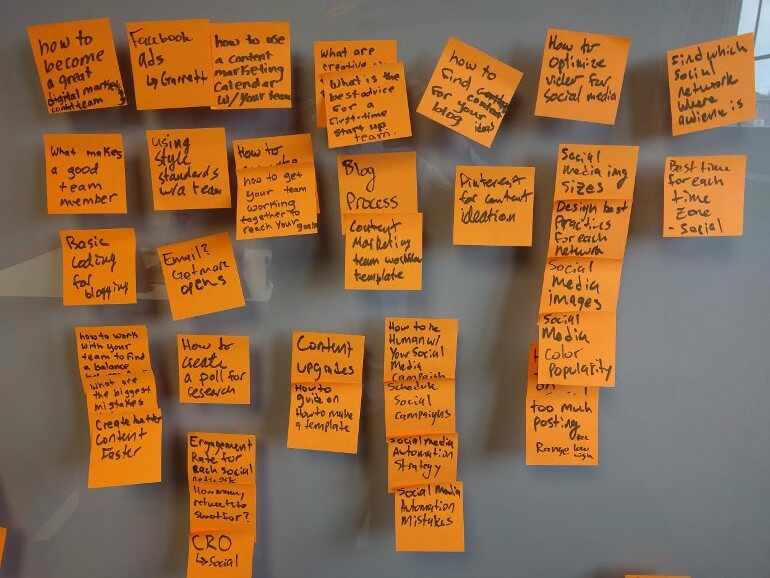 how to
become
a great
digital marketing
team
Facebook
ads
↳ Garrett
how to use
a content
marketing
Calendar
w/ your team
What are
creative
What is the
best advice
for a
first-time
start up
team.
how to
find
content
for your
blog ideas
How to
optimize
video for
social media
Find which
Social
network
where
audience is
What makes
a good
team
member
using
style
standards
w/a team
How to
how to get
your team
working
together to
reach your goals
Blog
Process
Content
Marketing
team workflow
template
Pinterest
for content
ideation
Social
media img
sizes
Design best
Practices
for each
network
Social
Media
images
Social
Media
color
Popularity
on
too much
posting
Range low
high
Best time
for each
time
Zone
- Social
Basic
Coding
for
blogging
Email?
Get more
opens
how to work
with your
team to find
a balance
What are
the biggest
mistakes
Create better
Content
Faster
How to
create
a poll for
research
Engagement
Rate for
each social
network
How many
retweets to
shoot for?
CRO
↳ Social
Content
upgrades
How to
guide on
How to make
a template
How to be
Human w/
Your Social
Media
Campaign
Schedule
Social
Campaigns
Social media
Automation
Strategy
Social Media
Automation
Mistakes